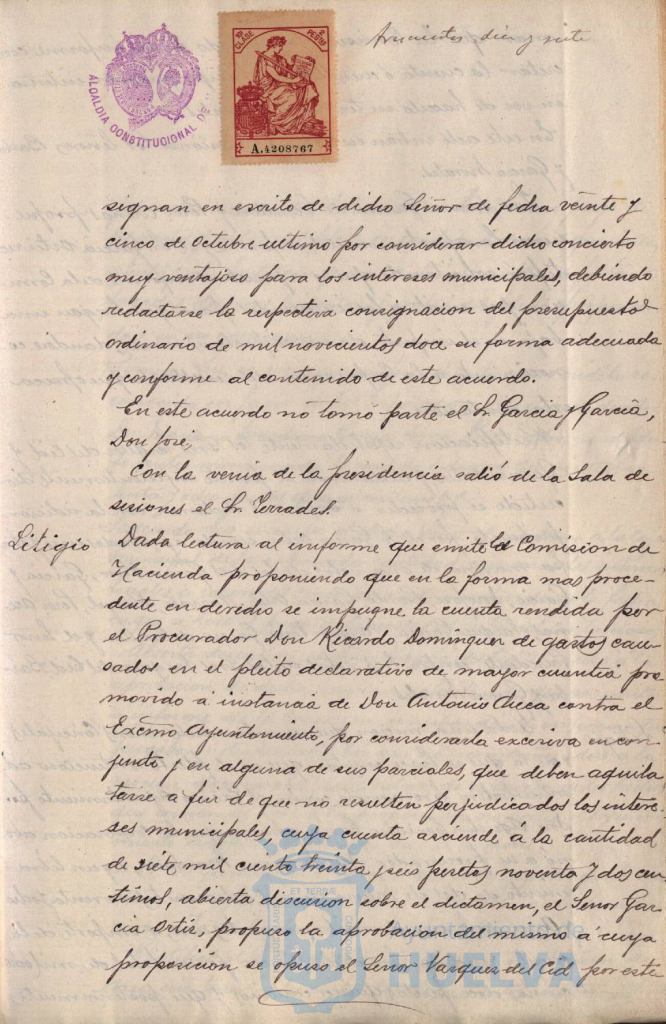 diez y siete
ALCALDIA CONSTITUCIONAL DE
10ª CLASE
PESETAS
A.4208767
signan en escrito de dicho Señor de fecha veinte y
cinco de Octubre ultimo por considerar dicho concierto
muy ventajoso para los intereses municipales, debiendo
redactarse la respectiva consignacion del presupuesto
ordinario de mil novecientos doce en forma adecuada
y conforme al contenido de este acuerdo.
En este acuerdo no tomó parte el Sr. Garcia y García,
Don José,
Con la venia de la presidencia salió de la Sala de
sesiones el Sr. Terrades.
Litigio
Dada lectura al informe que emite la Comision de
Hacienda proponiendo que en la forma mas proce-
dente en derecho se impugne la cuenta rendida por
el Procurador Don Ricardo Dominguez de gastos cau-
sados en el pleito declarativo de mayor cuantia pro
movido á instancia de Don Antonio Checa contra el
Excmo Ayuntamiento, por considerarla excesiva en con
junto y en alguna de sus parciales, que deben aquila
tarse a fin de que no resulten perjudicados los intere-
ses municipales, cuya cuenta asciende á la cantidad
de siete mil ciento treinta y seis pesetas noventa y dos cen
timos, abierta discusion sobre el dictamen, el Señor Gar
cia Ortiz, propuso la aprobacion del mismo á cuya
proposición se opuso el Señor Vazquez del Cid por este
Ayuntamiento de
HUELVA